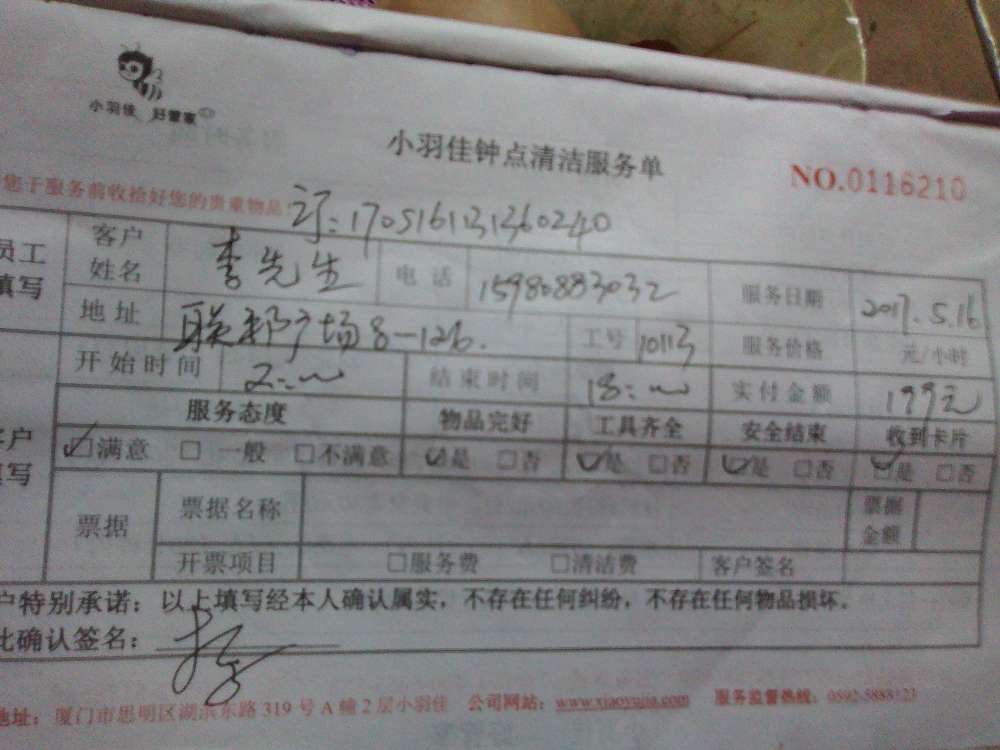 小羽佳 好管家
小羽佳钟点清洁服务单
NO.0116210
您于服务前收拾好您的贵重物品
订:170516131360240
员工填写 客户姓名 李先生 电话 15980883032 服务日期 2017.5.16
地址 联邦广场8-126. 工号 10113 服务价格 元/小时
开始时间 2: 结束时间 18: 实付金额 199元
服务态度 物品完好 工具齐全 安全结束 收到卡片
客户填写 ☑满意 □ 一般 □不满意 ☑是 □否 ☑是 □否 ☑是 □否 ☑是 □否
票据 票据名称 票据金额
开票项目 □服务费 □清洁费 客户签名
户特别承诺：以上填写经本人确认属实，不存在任何纠纷，不存在任何物品损坏。
此确认签名：
地址：厦门市思明区湖滨东路319号A幢2层小羽佳 公司网站：www.xiaoyujia.com 服务监督热线：0592-5888123